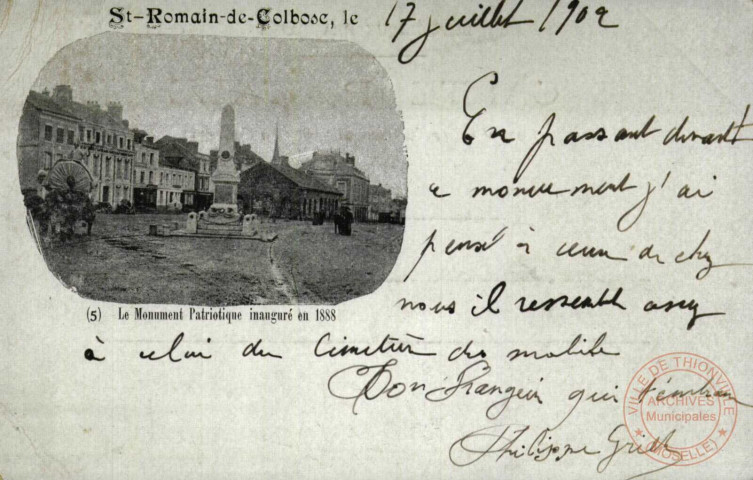 St-Romain-de-Colbosc, le 17 juillet 1902
En passant devant
ce monument j'ai
pensé à ceux de chez
nous il ressemble assez
à celui du Cimetière des mobiles
Ton qui
Philippe
(5) Le Monument Patriotique inauguré en 1888
VILLE DE THIONVILLE
ARCHIVES
Municipales
(MOSELLE)